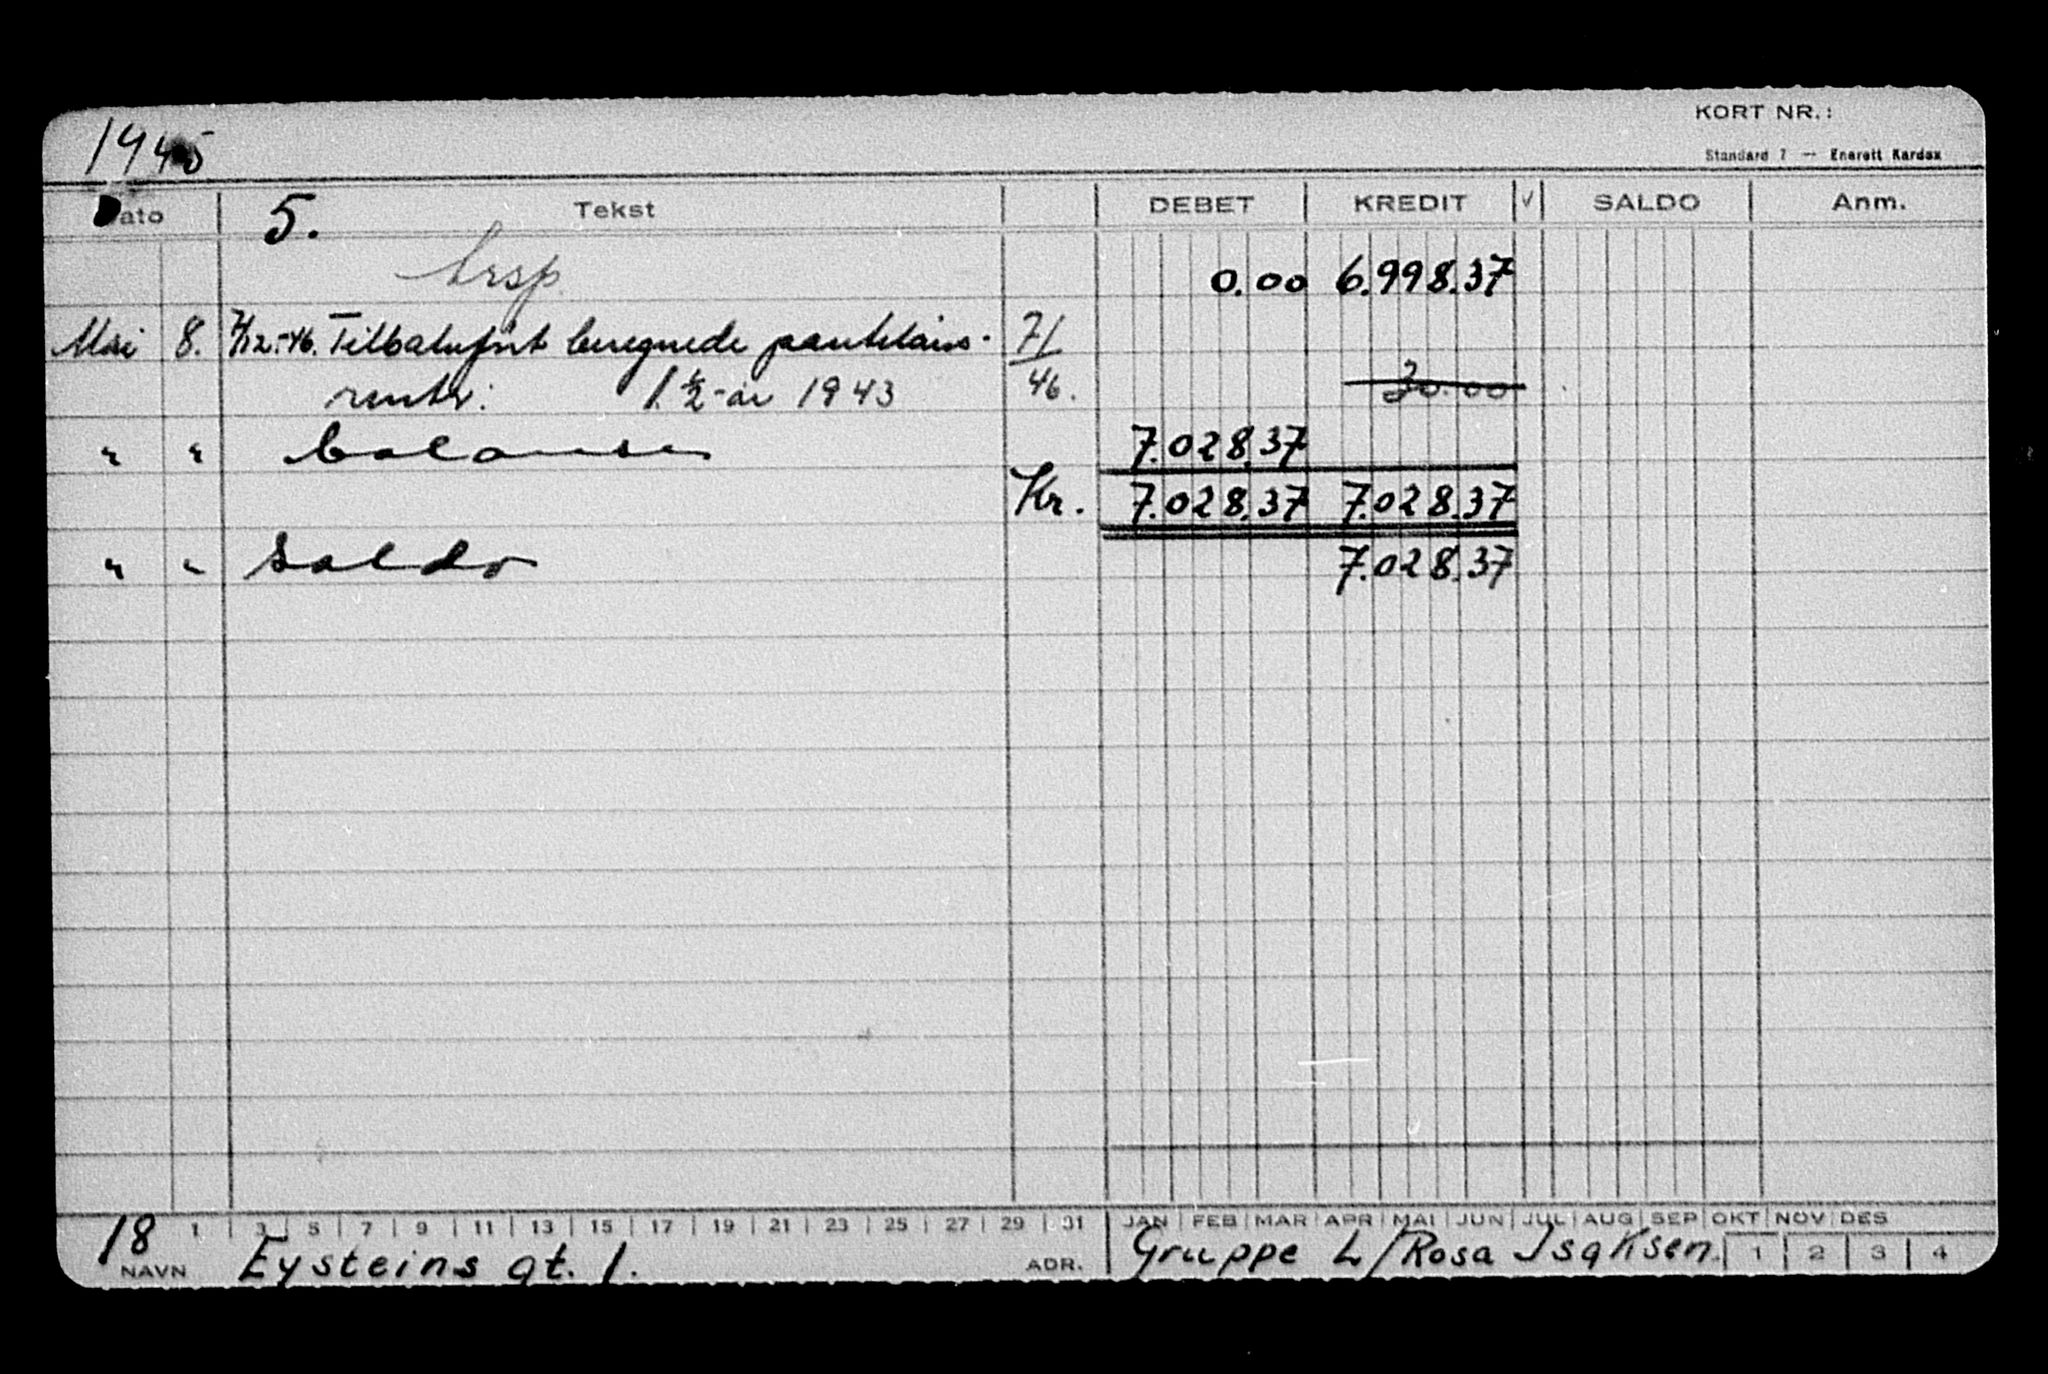 KORT NR.:
1945
Standard 7 — Enerett Kardex
Dato 5. Tekst DEBET KREDIT √ SALDO Anm.
Trsp. 0.00 6.998.37
Mai 8. 7/12.-46. Tilbakeført beregnede pantelåns- 71/
renter. 1. ½-år 1943 46. 30.00
" " balanse 7.028.37
Kr. 7.028.37 7.028.37
" " saldo 7.028.37
18 1 3 5 7 9 11 13 15 17 19 21 23 25 27 29 31 JAN FEB MAR APR MAI JUN JUL AUG SEP OKT NOV DES
NAVN Eysteins gt. 1. ADR. Gruppe L/Rosa Isaksen. 1 2 3 4